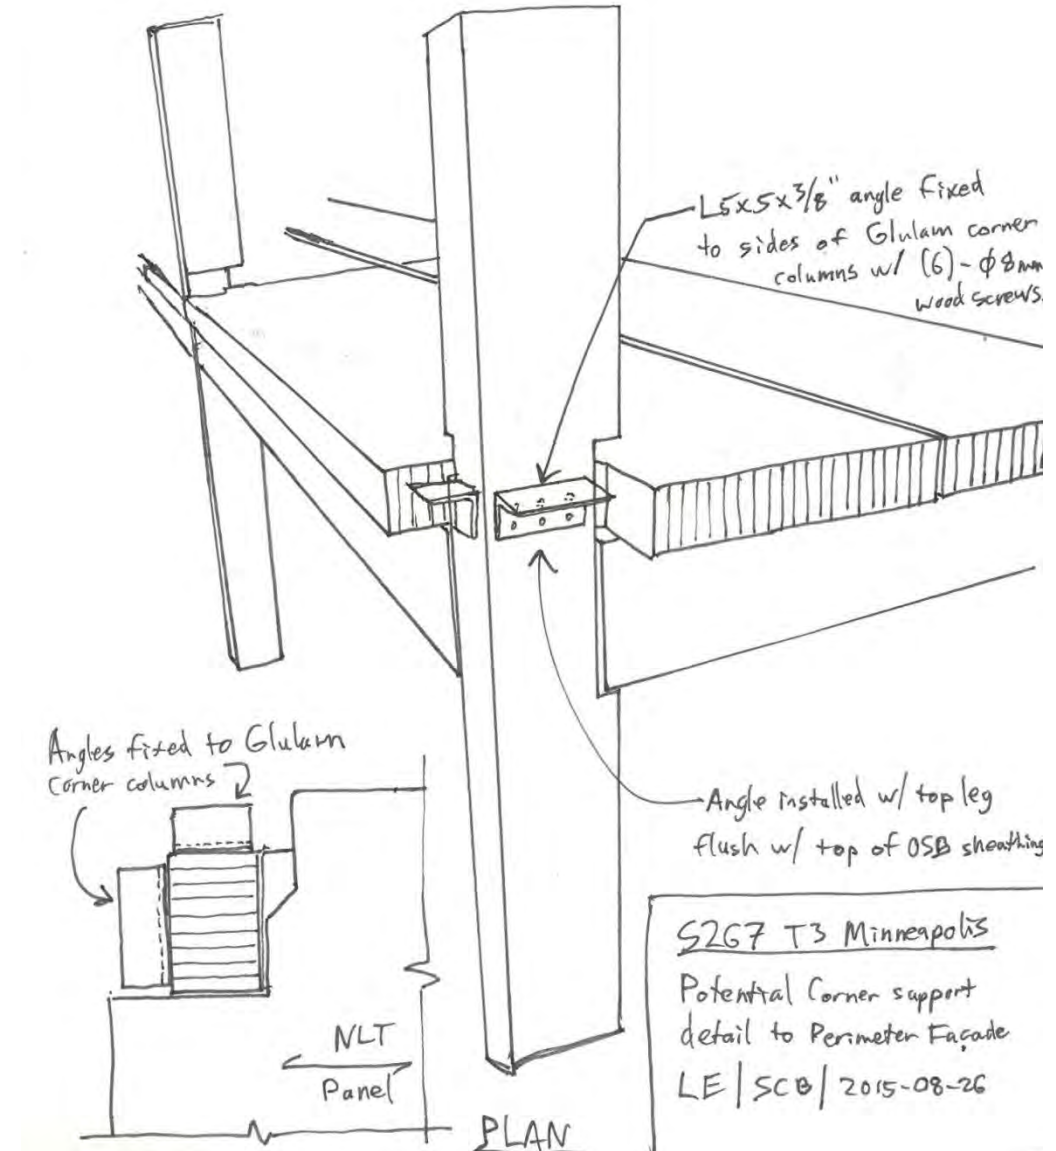 L5x5x3/8" angle fixed
to sides of Glulam corner
columns w/ (6)-ϕ8mm
wood screws.
Angles fixed to Glulam
Corner columns
Angle installed w/ top leg
flush w/ top of OSB sheathing
NLT
Panel
PLAN
S267 T3 Minneapolis
Potential Corner support
detail to Perimeter Façade
LE | SCB | 2015-08-26